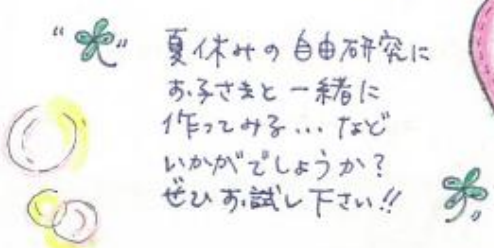 夏休みの自由研究に
お子さまと一緒に
作ってみる...など
いかがでしょうか?
ぜひお試し下さい!!